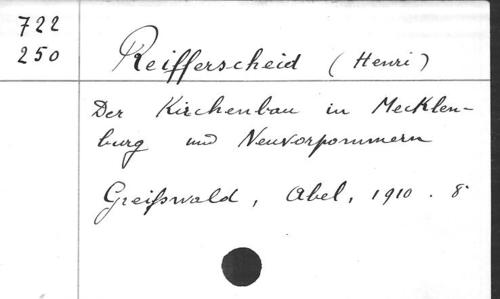 722
250
Reifferscheid (Henri)
Der Kirchenbau in Mecklen-
burg und Neuvorpommern
Greifswald, Abel, 1910. 8°